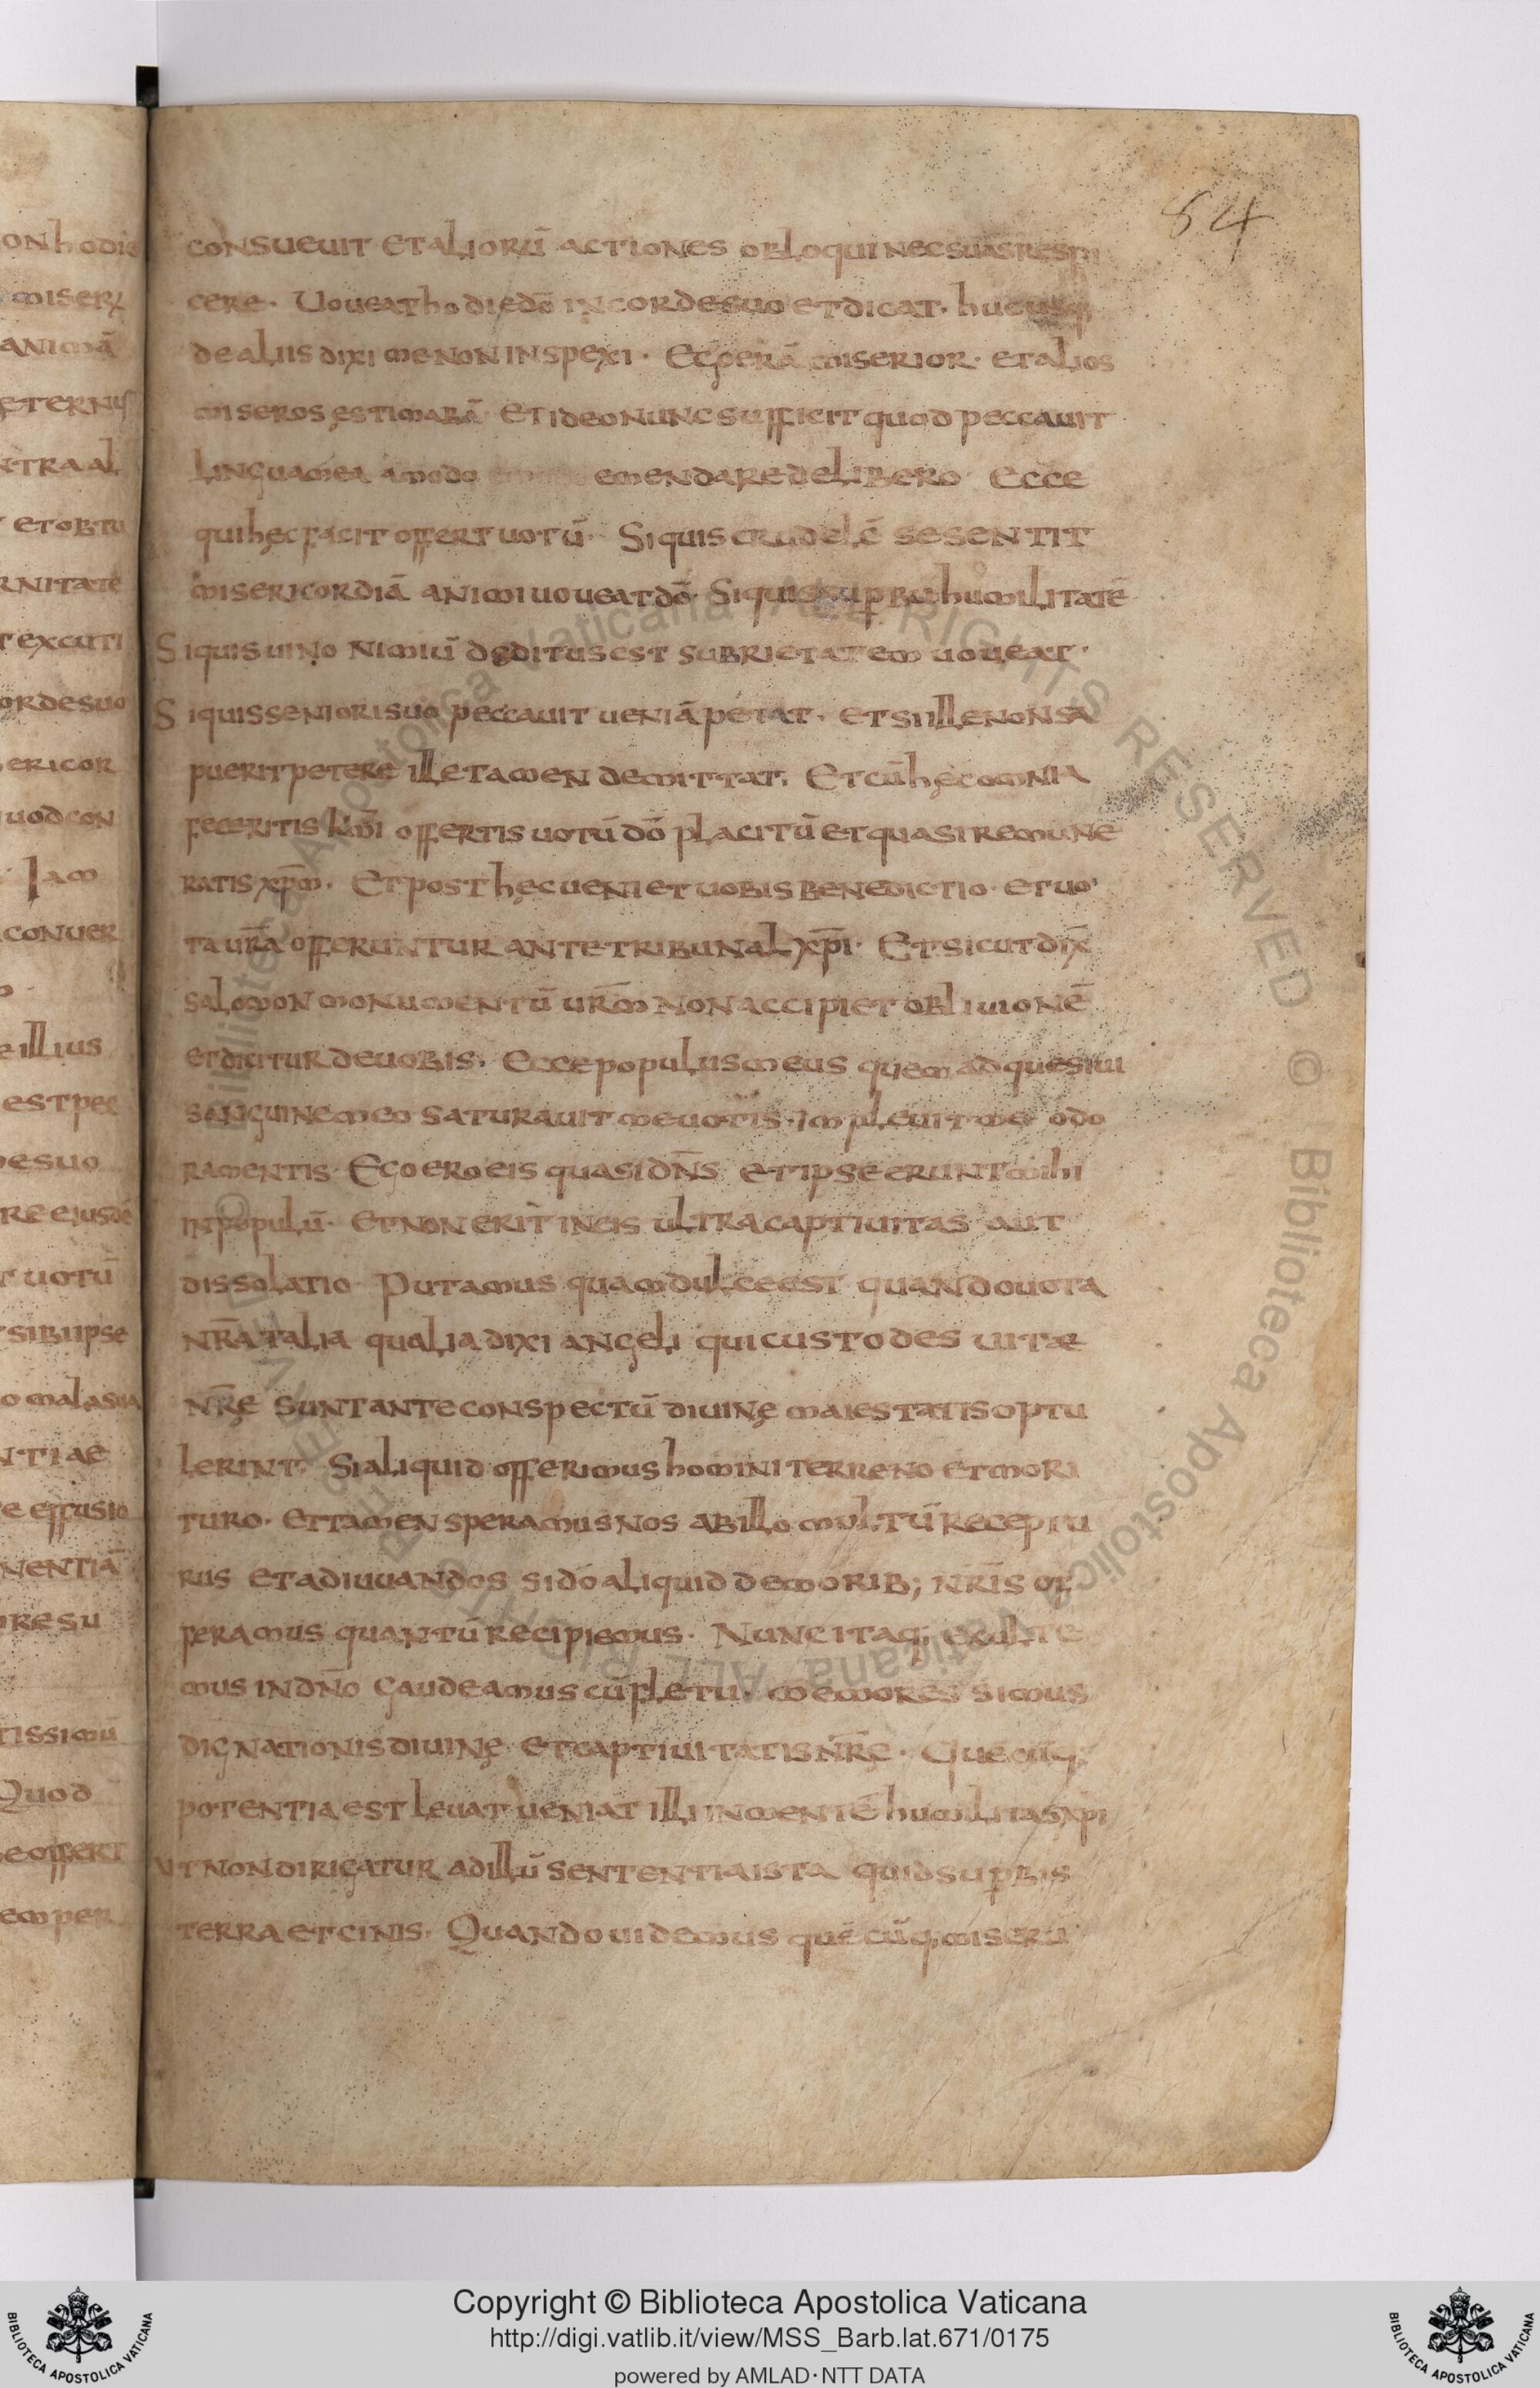 84
consueuit et aliorū actiones obloqui nec suas respi
cere · Uoueat hodie dō in cordesuo et dicat · hucusq;
de aliis dixi me non inspexi · Ego erā miserior · et alios
miseros ęstimabā · Et ideo nunc sufficit quod peccauit
lingua mea amodo emendare delibero Ecce
qui hęc facit offert uotū · Si quis crudelē se sentit
misericordiā animi uoueat dō · Si quis supbu humilitatē
Si quis uino nimiū deditus est subrietatem uoueat ·
Si quis seniori suo peccauit ueniā petat · et si ille non sa
puerit petere ille tamen demittat; Et cū hęc omnia
feceritis kmī offertis uotū dō placitū et quasi remune
ratis xpm̄ · Et post hęc ueniet uobis benedictio · et uo
ta ur̄a offeruntur ante tribunal xpī · Et sicut dix̄
salomon monumentū ur̄m non accipiet obliuionē
et dicitur de uobis · Ecce populus meus quem adquesiui
sanguine meo saturauit me uotis · impleuit me odo
ramentis · Ego ero eis quasi dn̄s et ipse erunt mihi
in populū · et non erit in eis ultra captiuitas aut
dissolatio · Putamus quam dulce est quando uota
nr̄a talia qualia dixi angeli qui custodes uitæ
nr̄ę sunt ante conspectū diuinę maiestatis optu
lerint · Si aliquid offerimus homini terreno et mori
turo · et tamen speramus nos ab illo multū receptu
rus et adiuuandos si dō aliquid de morib; nr̄is of
feramus quantū recipiemus · Nunc itaq; exulte
mus in dn̄o gaudeamus cū fletu · memores simus
dignationis diuinę · et captiuitatis nr̄ę · Quecūq;
potentia est leuat ueniat illi in mentē humilitas xpi
Ut non dirigatur ad illū sententia ista quid supbis
terra et cinis · Quando uidemus quēcūq; miserū
Copyright © Biblioteca Apostolica Vaticana
http://digi.vatlib.it/view/MSS_Barb.lat.671/0175
powered by AMLAD·NTT DATA